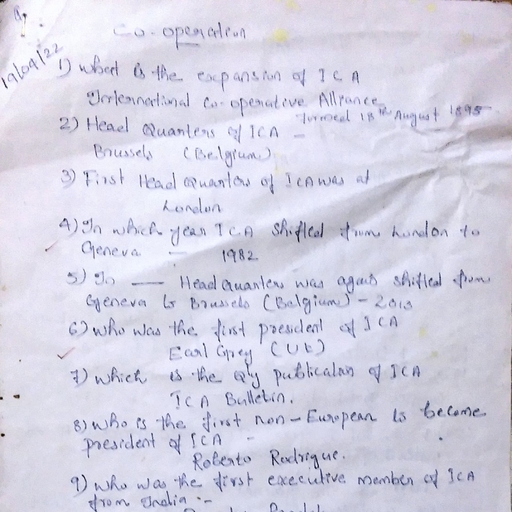 Co-operation
19/04/22
1) What is the expansion of ICA
International Co-operative Alliance
formed 18th August 1895
2) Head Quarters of ICA -
Brussels (Belgium)
3) First Head Quarters of ICA was at
London
4) In which year ICA shifted from London to
Geneva - 1982
5) In — Headquarters was again shifted from
Geneva to Brussels (Belgium) - 2013
6) Who was the first president of ICA
Earl Grey (UK)
7) Which is the Qly publication of ICA
ICA Bulletin.
8) Who is the first non-European to become
president of ICA -
Roberto Rodrigue.
9) Who was the first executive member of ICA
from India :-